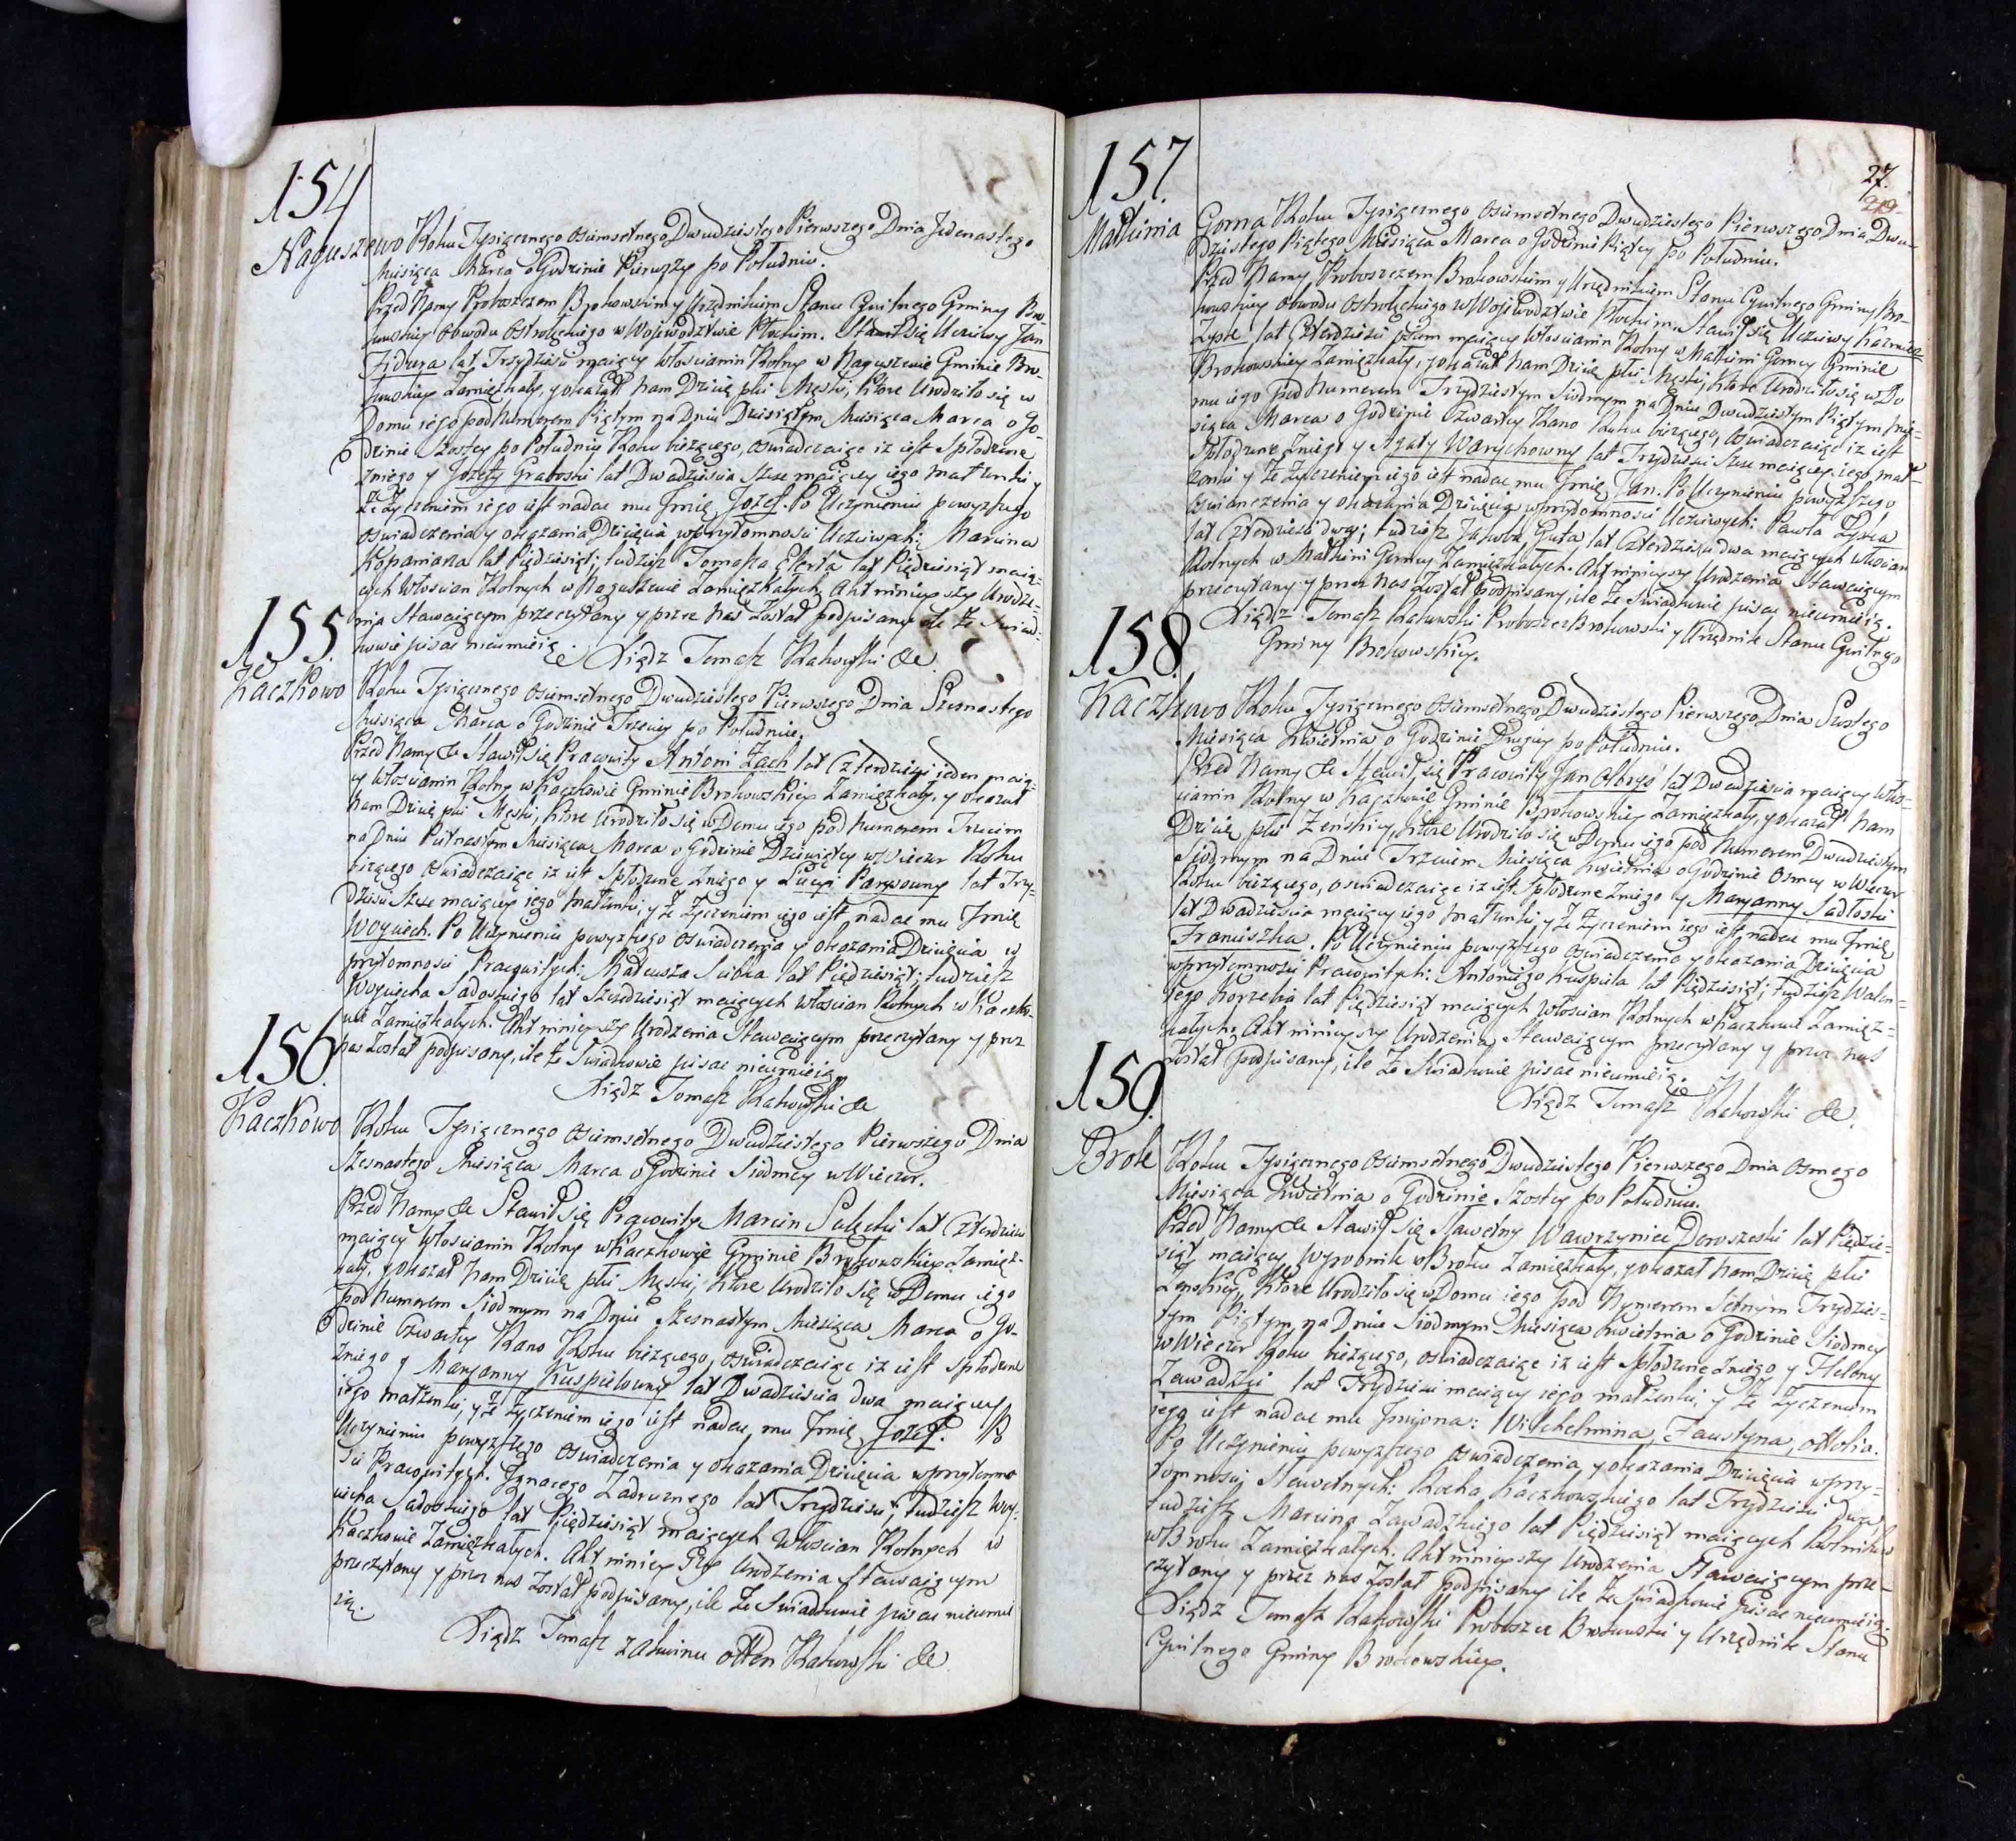 154
Naguszewo Roku Tysiącznego Osimsetnego Dwudziestego Pierwszego Dnia Jedenastego
Miesiąca Marca o Godzinie Pierwszy po Południu.
Przed Namy Proboszczem Brokowskim y Urzędnikiem Stanu Cywilnego Gminy Bro-
kowskiey Obwodu Ostrołęckiego w Wojewodztwie Płockim. Stawił się Uczciwy Jan
Fidura lat Trzydzieści maiący Włoscianin Rolny w Naguszewie Gminie Bro-
kowskiey Zamięszkały, y okazał Nam Dziecię płci Męskiej, które Urodziło się w
Domu iego pod Numerem Piątym na Dniu Dziesiątym Miesiąca Marca o Go-
dzinie Szostey po Południu Roku bieżącego, oswiadczaiąc iż iest Spłodzone
z niego y Jozefy Graboski lat Dwadzieścia Szesc maiącey iego małżonki y
że Życzeniem iego iest nadac mu Jmię Jozef. Po Uczynieniu powyższego
oswiadczenia y okazania Dziecięcia w przytomności Uczciwych: Marcina
Kopaniarza lat Pięćdziesiąt; tudzież Tomasza Elerta lat Pięćdziesiąt maią-
cych Włoscian Rolnych w Naguszewie Zamięszkałych. Akt ninieyszy Urodze-
nia Stawaiącym przeczytany y przez Nas Został podpisany ile że Swiad-
kowie pisac nieumieią. Xiądz Tomasz Rakowski &c
155.
Kaczkowo Roku Tysiącznego Osimsetnego Dwudziestego Pierwszego Dnia Szesnastego
Miesiąca Marca o Godzinie Trzeciey po Południu.
Przed Namy &c Stawił się Pracowity Antoni Zach lat Czterdzieści jeden maią-
cy Włoscianin Rolny w Kaczkowie Gminie Brokowskiey Zamięszkały, y okazał
Nam Dziecię płci Męski, które Urodziło się w Domu iego pod Numerem Trzecim
na Dniu Pietnastym Miesiąca Marca o Godzinie Dziewiątey w Wieczor Roku
bieżącego oswiadczaiąc iż iest Spłodzone z niego y Łucyi Parzowny lat Trzy-
dzieści Szesc maiącey iego małżonki, y że Życzeniem iego iest nadac mu Jmię
Woyciech. Po Uczynieniu powyższego oswiadczenia y okazania Dziecięcia w
przytomności Pracowitych: Mateusza Scibka lat Pięćdziesiąt; tudzież
Woyciecha Sadoskiego lat Szescdziesiąt maiących Włoscian Rolnych w Kaczko-
wie Zamięszkałych. Akt ninieyszy Urodzenia Stawaiącym przeczytany y prez
nas Został podpisany, ile że Swiadkowie pisac nieumieią.
Xiądz Tomasz Rakowski &c
156.
Kaczkowo Roku Tysiącznego Osimsetnego Dwudziestego Pierwszego Dnia
Szesnastego Miesiąca Marca o Godzinie Siodmey w Wieczor.
Przed Namy &c Stawił się Pracowity Marcin Salęcki lat Czterdzieści
maiący Włoscianin Rolny w Kaczkowie Gminie Brokowskiey Zamięsz-
kały, y okazał Nam Dziecię płci Męski, które Urodziło się w Domu iego
pod Numerem Siodmym na Dniu Szesnastym Miesiąca Marca o Go-
dzinie Czwartey Rano Roku bieżącego, oswiadczaiąc iż iest Spłodzone
z niego y Maryanny Kuspielowny lat Dwadzieścia dwa maiącey
iego małżonki, y że życzeniem iego iest nadac mu Jmię Jozef. Po
Uczynieniu powyższego oswiadczenia y okazania Dziecięcia w przytomno-
ści Pracowitych: Jgnacego Zadrucznego lat Trzydzieści; tudzież Woy-
ciecha Sadoskiego lat Pięćdziesiąt maiących Włoscian Rolnych w
Kaczkowie Zamięszkałych. Akt ninieyszy Urodzenia Stawaiącym
przeczytany y przez nas Został podpisany, ile że Swiadkowie pisac nieumie
ią.
Xiądz Tomasz Rakowski &c
27.
157.
Małkinia Gorna Roku Tysiącznego Osimsetnego Dwudziestego Pierwszego Dnia Dwu-
dziestego Piątego Miesiąca Marca o Godzinie Piątey po Południu.
Przed Namy Proboszczem Brokowskim y Urzędnikiem Stanu Cywilnego Gminy Bro-
kowskiey Obwodu Ostrołęckiego w Wojewodztwie Płockim. Stawił się Uczciwy Kazmierz
Zysk lat Czterdzieści Osium maiący Włoscianin Rolny w Małkini Gorney Gminie
Brokowskiey Zamięszkały, y okazał Nam Dziecię płci Męskij, które Urodziło się w Do
mu iego pod Numerem Trzydziestym Siodmym na Dniu Dwudziestym Piątym Mie-
siąca Marca o Godzinie Czwartey Rano Roku bieżącego, oswiadczaiąc iż iest
Spłodzone z niego y Agaty Warychowny lat Trzydzieści Szesc maiącey iego mał-
żonki y że Życzeniem iego iest nadac mu Jmię Jan. Po Uczynieniu powyższego
oswiadczenia y okazania Dziecięcia w przytomności Uczciwych: Pawła Zyska
lat Czterdzieści dwa; tudzież Jakuba Guta lat Czterdzieści dwa maiących Włoscian
Rolnych w Małkini Gorney Zamięszkałych. Akt ninieyszy Urodzenia Stawaiącym
przeczytany y przez Nas Został podpisany, ile że Swiadkowie pisac nieumieią.
Xiądz Tomasz Rakowski Proboszcz Brokowski y Urzędnik Stanu Cywilnego
Gminy Brokowskiey.
158.
Kaczkowo Roku Tysiącznego Osimsetnego Dwudziestego Pierwszego Dnia Szostego
Miesiąca Kwietnia o Godzinie Drugiey po Południu.
Przed Namy &c Stawił się Pracowity Jan Olbryś lat Dwadzieścia maiący Włos-
cianin Rolny w Kaczkowie Gminie Brokowskiey Zamięszkały, y okazał Nam
Dziecię płci Żeńskiey, które Urodziło się w Domu iego pod Numerem Dwudziestym
Siodmym na Dniu Trzecim Miesiąca Kwietnia o Godzinie Osmey w Wieczor
Roku bieżącego, oswiadczaiąc iż iest Spłodzone z niego y Maryanny Sadłoski
lat Dwadzieścia maiącey iego małżonki y że Życzeniem iego iest nadac mu Jmię
Franciszka. Po Uczynieniu powyższego oswiadczenia y okazania Dziecięcia
w przytomności Pracowitych: Antoniego Kuspiela lat Pięćdziesiąt; tudzież Walen-
tego Korzelia lat Pięćdziesiąt maiących Włoscian Rolnych w Kaczkowie Zamięsz-
kałych. Akt ninieyszy Urodzenia Stawaiącym przeczytany y przez nas
Został podpisany, ile że Swiadkowie pisac nieumieią.
Xiądz Tomasz Rakowski &c.
159.
Brok Roku Tysiącznego Osimsetnego Dwudziestego Pierwszego Dnia Osmego
Miesiąca Kwietnia o Godzinie Szostey po Południu.
Przed Namy &c Stawił się Sławetny Wawrzyniec Doroszeski lat Pięćdzie-
siąt maiący Wyrobnik w Broku Zamięszkały, y okazał Nam Dziecię płci
Żenskiey, które Urodziło się w Domu iego pod Numerem Setnym Trzydzies-
tym Piątym na Dniu Siodmym Miesiąca Kwietnia o Godzinie Siodmey
w Wieczor Roku bieżącego, oswiadczaiąc iż iest Spłodzone z niego y Heleny
Zawadzki lat Trzydzieści maiącey iego małżonki, y że Życzeniem
iego iest nadac mu Jmiona: Wilchelmina, Faustyna, Ottolia.
Po Uczynieniu powyższego oswiadczenia, y okazania Dziecięcia w przy-
tomności Sławetnych: Rocha Kaczkowskiego lat Trzydzieści dwa,
tudzież Marcina Zawadzkiego lat Pięćdziesiąt maiących Rolnikow
w Broku Zamięszkałych. Akt ninieyszy Urodzenia Stawaiącym prze-
czytany y przez nas Został podpisany ile że Swiadkowie pisac nieumieią.
Xiądz Tomasz Rakowski Proboszcz Brokowski y Urzędnik Stanu
Cywilnego Gminy Brokowskiey.